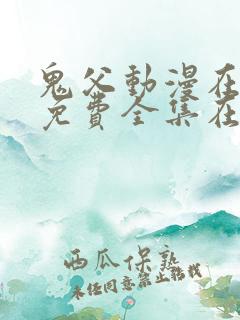 鬼父動漫在
免費全集在
西瓜保熟
未经同意禁止转载